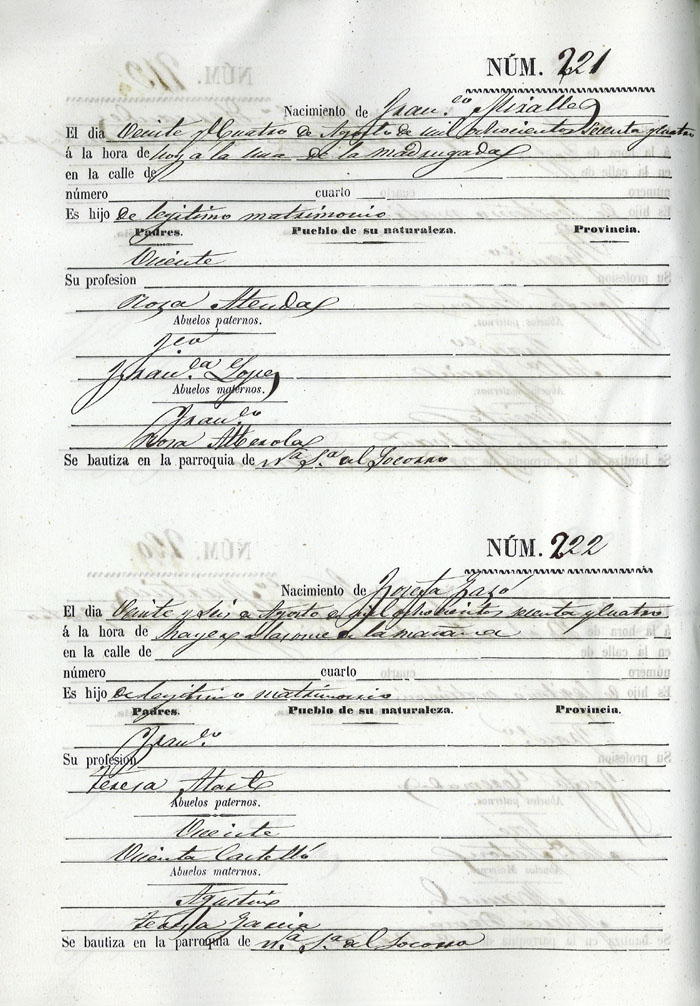 NÚM. 221
Nacimiento de Fran.co Miralles
El dia Veinte y Cuatro de Agosto de mil ochocientos sesenta y cuatro
á la hora de hoy á la una de la madrugada
en la calle de
número cuarto
Es hijo de legitimo matrimonio
Padres. Pueblo de su naturaleza. Provincia.
Vicente
Su profesion
Rosa
Abuelos paternos.
Fran.ca Lopez
Abuelos maternos.
Fran.co
Rosa
Se bautiza en la parroquia de N.a S.a del Socorro
NÚM. 222
Nacimiento de Josefa
El dia Veinte y Seis de Agosto de mil ochocientos sesenta y cuatro
á la hora de de la mañana
en la calle de
número cuarto
Es hijo de legitimo matrimonio
Padres. Pueblo de su naturaleza. Provincia.
Fran.co
Su profesion
Teresa
Abuelos paternos.
Vicente
Vicenta Castelló
Abuelos maternos.
Agustin
Teresa Garcia
Se bautiza en la parroquia de N.a S.a del Socorro